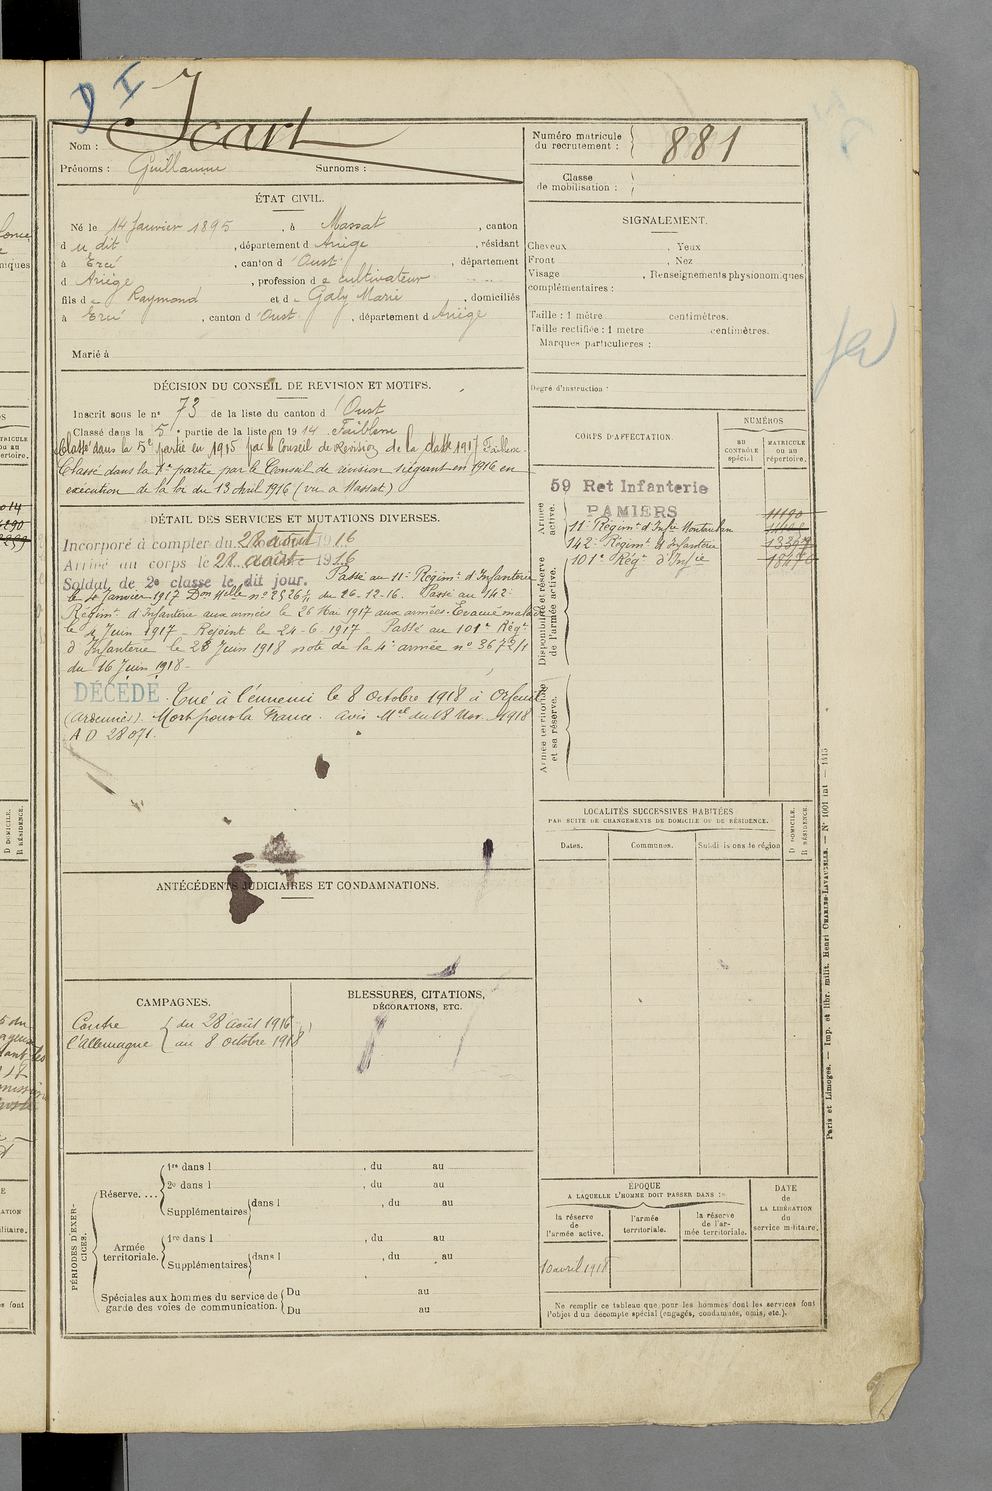 D I
Icart
Nom :
Prénoms : Guillaume Surnoms :
Numéro matricule
du recrutement : 881
Classe
de mobilisation :
ÉTAT CIVIL.
Né le 14 Janvier 1895, à Massat, canton
du dit, département d Ariège, résidant
à Ercé, canton d'Oust, département
d Ariège, profession de cultivateur
fils de Raymond et de Galy Marie, domiciliés
à Ercé, canton d'Oust, département d Ariège
Marié à
SIGNALEMENT.
Cheveux , Yeux
Front , Nez
Visage , Renseignements physionomiques
complémentaires :
Taille : 1 mètre centimètres.
Taille rectifiée : 1 mètre centimètres.
Marques particulières :
Degré d'instruction :
DÉCISION DU CONSEIL DE REVISION ET MOTIFS.
Inscrit sous le n° 73 de la liste du canton d'Oust
Classé dans la 5e partie de la liste en 1914 Faiblesse
Classé dans la 5e partie en 1915 par le Conseil de Revision de la classe 1917 Faiblesse
Classé dans la 1e partie par le Conseil de révision siégeant en 1916 en
exécution de la loi du 13 Avril 1916 (vu à Massat)
DÉTAIL DES SERVICES ET MUTATIONS DIVERSES.
Incorporé à compter du 28 août 1916
Arrivé au corps le 28 août 1916
Soldat de 2e classe le dit jour. Passé au 11e Régimt d'Infanterie
le 4 Janvier 1917 Don Melle n° 25264 du 26-12-16. Passé au 142e
Régimt d'Infanterie aux armées le 26 Mai 1917 aux armées. Evacué malade
le 4 Juin 1917 - Rejoint le 24-6-1917 - Passé au 101e Régt
d'Infanterie le 28 Juin 1918 note de la 4e armée n° 3672/1
du 16 Juin 1918 -
DÉCÉDÉ. Tué à l'ennemi le 8 Octobre 1918 à Orfeuil
(Ardennes). Mort pour la France. Avis Mel du 18 Nov. 1918
A D 28071.
CORPS D'AFFECTATION.
NUMÉROS
AU CONTRÔLE spécial
MATRICULE OU AU répertoire.
Armée active.
59 Ret Infanterie
PAMIERS
11190
11e Régimt d'Infie Montauban
142e Régimt d'Infanterie
101e Rég. d'Infie
Disponibilité et réserve de l'armée active.
Armée territoriale et sa réserve.
LOCALITÉS SUCCESSIVES HABITÉES
PAR SUITE DE CHANGEMENTS DE DOMICILE OU DE RÉSIDENCE.
Dates. Communes. Subdivisions de région
D DOMICILE.
R RÉSIDENCE.
ANTÉCÉDENTS JUDICIAIRES ET CONDAMNATIONS.
CAMPAGNES.
Contre { du 28 août 1916
l'Allemagne { au 8 octobre 1918
BLESSURES, CITATIONS,
DÉCORATIONS, ETC.
PÉRIODES D'EXERCICES.
Réserve....
1re dans l , du au
2e dans l , du au
Supplémentaires dans l , du au
Armée territoriale.
1re dans l , du au
Supplémentaires dans l , du au
Spéciales aux hommes du service de garde des voies de communication.
Du au
Du au
ÉPOQUE
A LAQUELLE L'HOMME DOIT PASSER DANS :
la réserve de l'armée active.
l'armée territoriale.
la réserve de l'armée territoriale.
DATE de LA LIBÉRATION du service militaire.
10 avril 1918
Ne remplir ce tableau que pour les hommes dont les services font
l'objet d'un décompte spécial (engagés, condamnés, omis, etc.).
Paris et Limoges. — Imp. et libr. milit. Henri CHARLES-LAVAUZELLE. — N° 1001 int — 1415